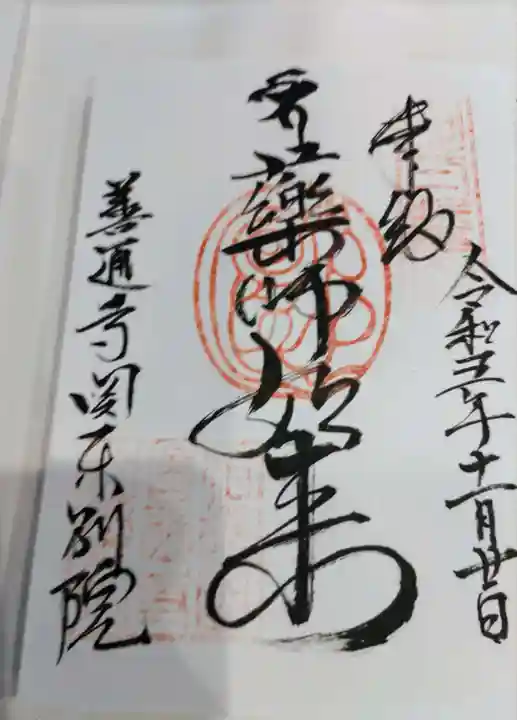 奉納
令和三年十一月廿日
藥師如来
善通寺関東別院